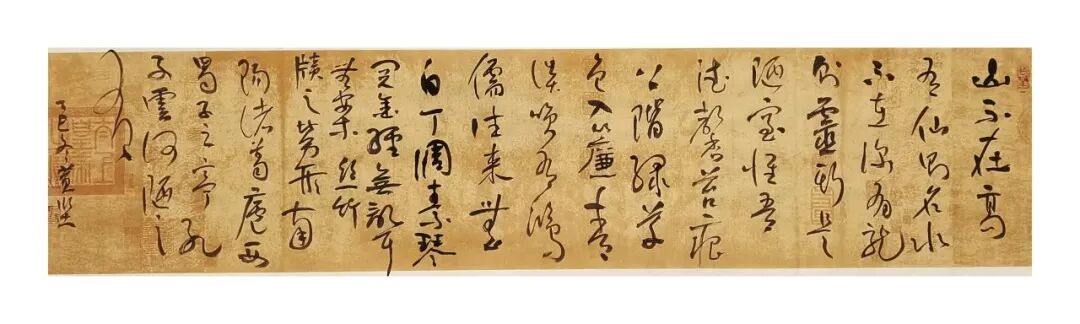 山不在高
有仙則名水
不在深有龍
則靈斯是
陋室惟吾
德馨苔痕
上階綠草
色入簾青
談笑有鴻
儒往来無
白丁調素琴
閱金經無亂耳
無案絲竹
牘之勞形南
陽諸葛廬西
蜀子云亭孔
子雲何陋之
有